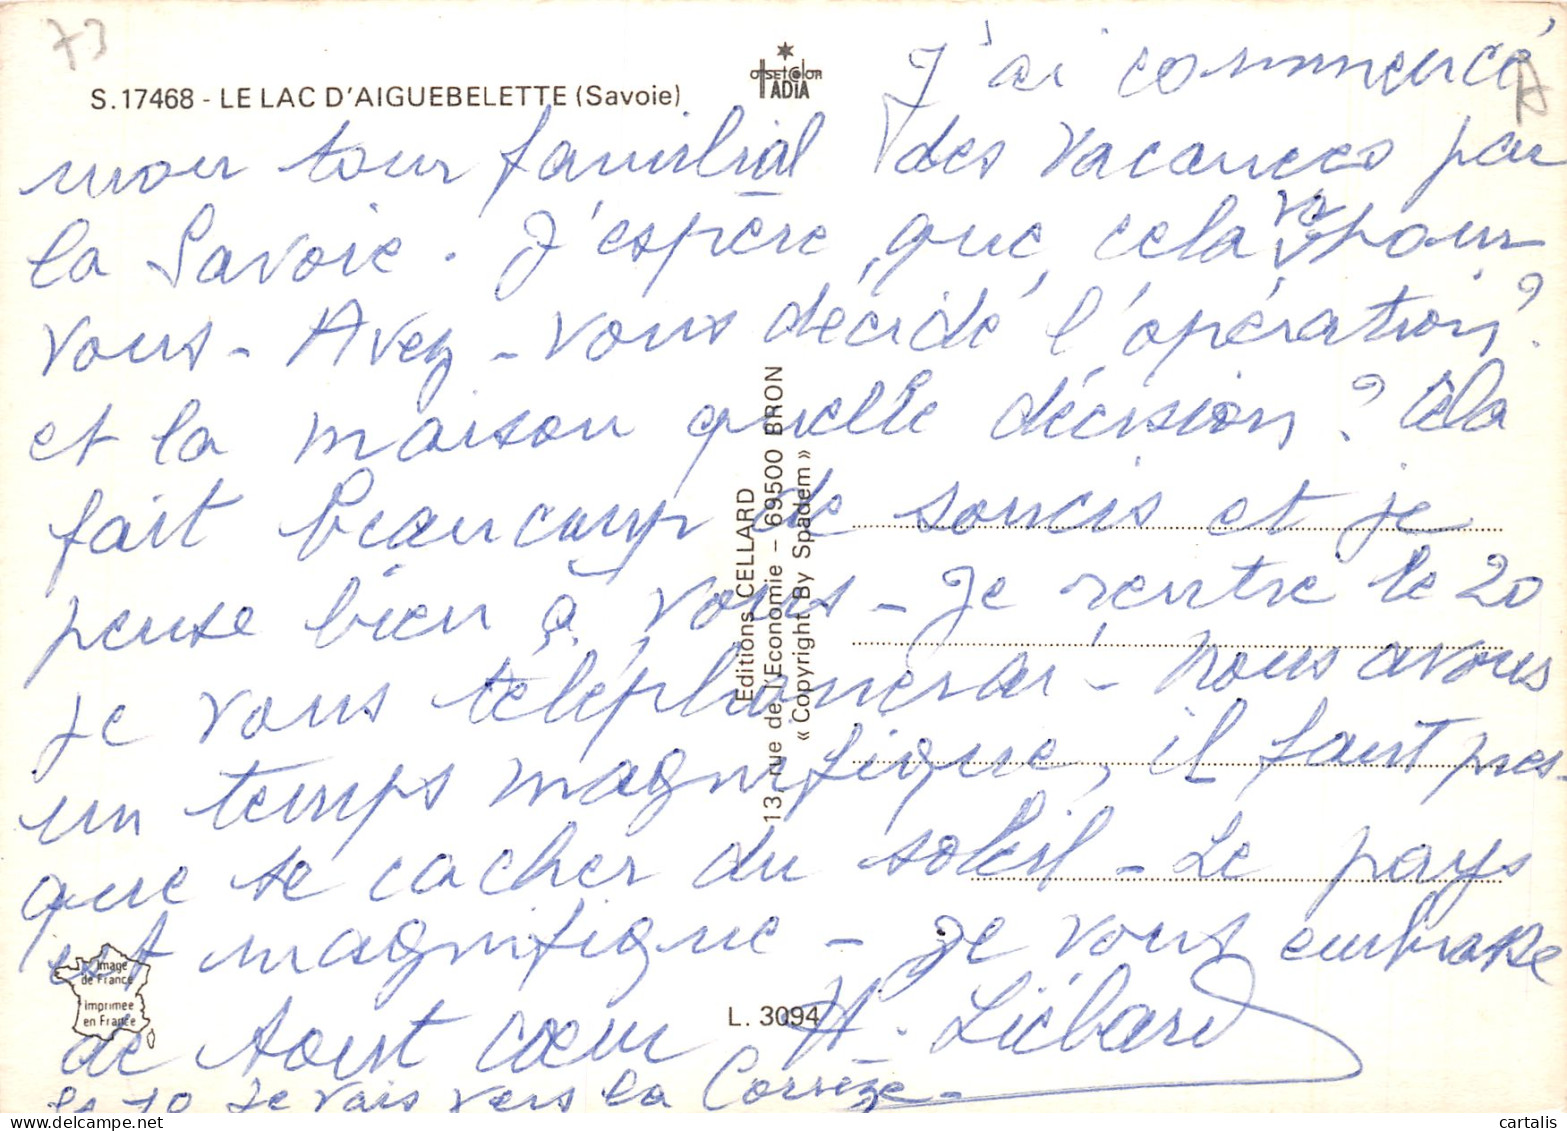 73
S.17468 - LE LAC D'AIGUEBELETTE (Savoie)
OFFSETCOLOR
IADIA
A
J'ai commencé
mon tour familial des vacances par
la Savoie. J'espère que cela va pour
vous - Avez-vous décidé l'opération ?
et la maison quelle décision ? Cela
fait beaucoup de soucis et je
pense bien à vous - Je rentre le 20
je vous téléphonerai - Nous avons
un temps magnifique, il faut pres-
que se cacher du soleil - Le pays
est magnifique - Je vous embrasse
de tout cœur H. Liébard
le 10 je vais vers la Corrèze -
Editions CELLARD
13, rue de l'Economie - 69500 BRON
« Copyright By Spadem »
Image
de France
imprimée
en France
L. 3094
cartalis